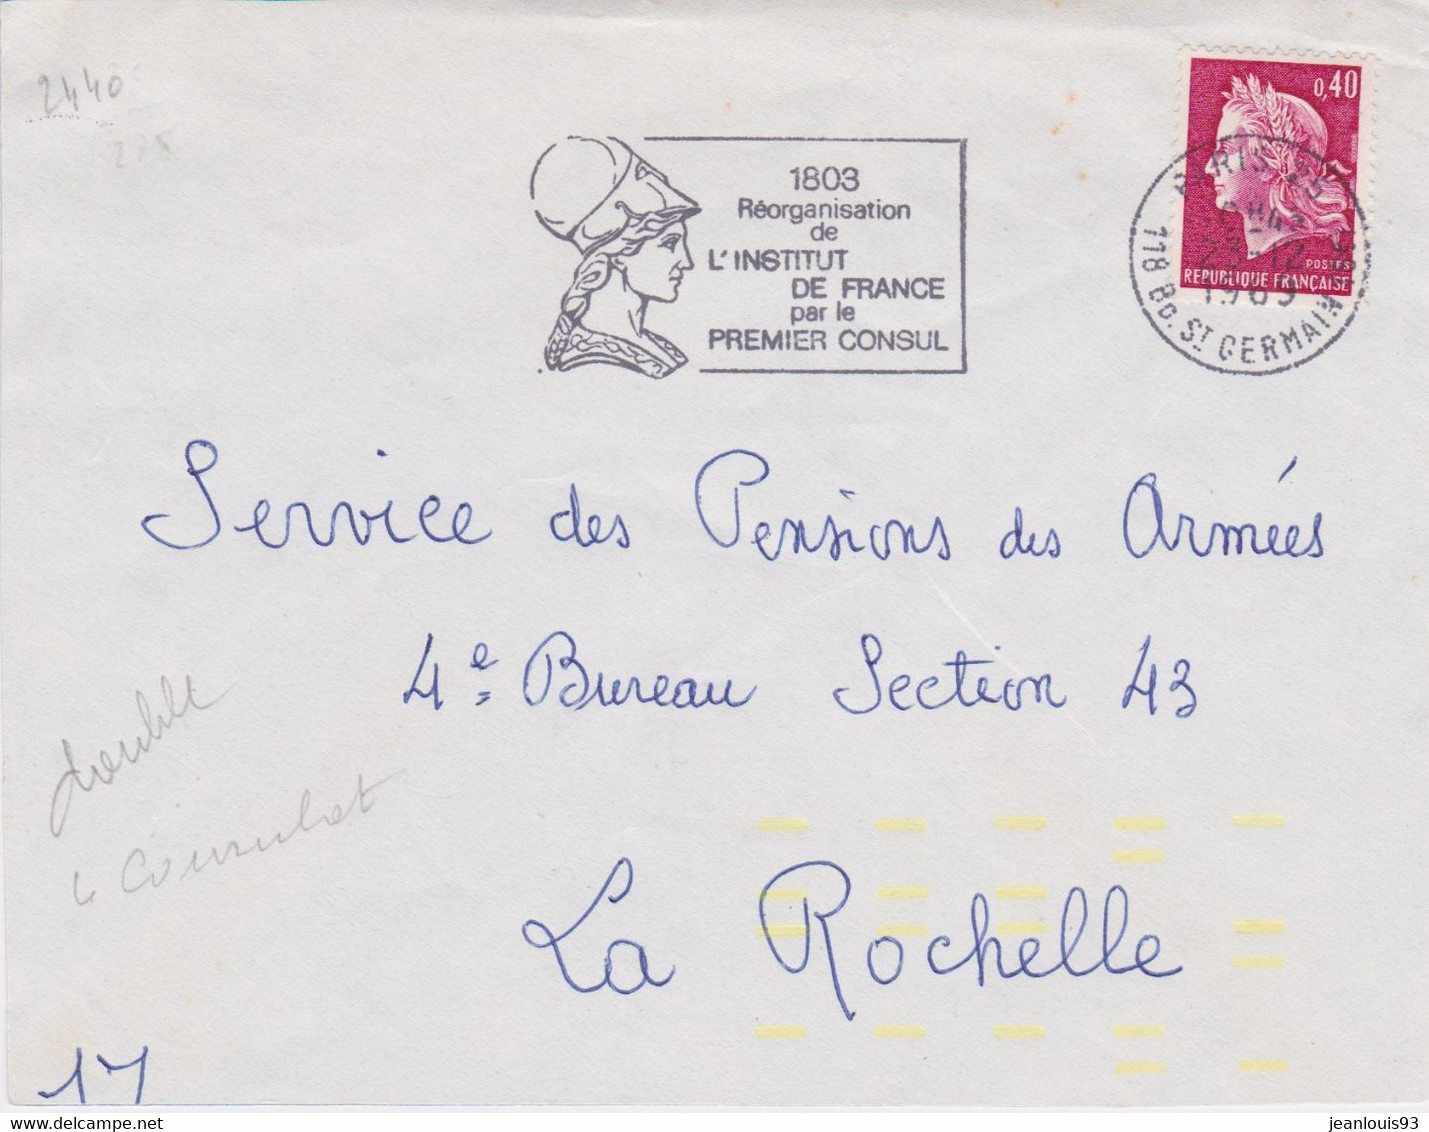 2440
0,40
1803
Réorganisation
de
L'INSTITUT
DE FRANCE
par le
PREMIER CONSUL
PARIS 25
23-12
1969
118 BD. ST GERMAIN
POSTES
REPUBLIQUE FRANÇAISE
Service des Pensions des Armées
4e Bureau Section 43
double
Consulat
La Rochelle
17
delcampe.net
jeanlouis93